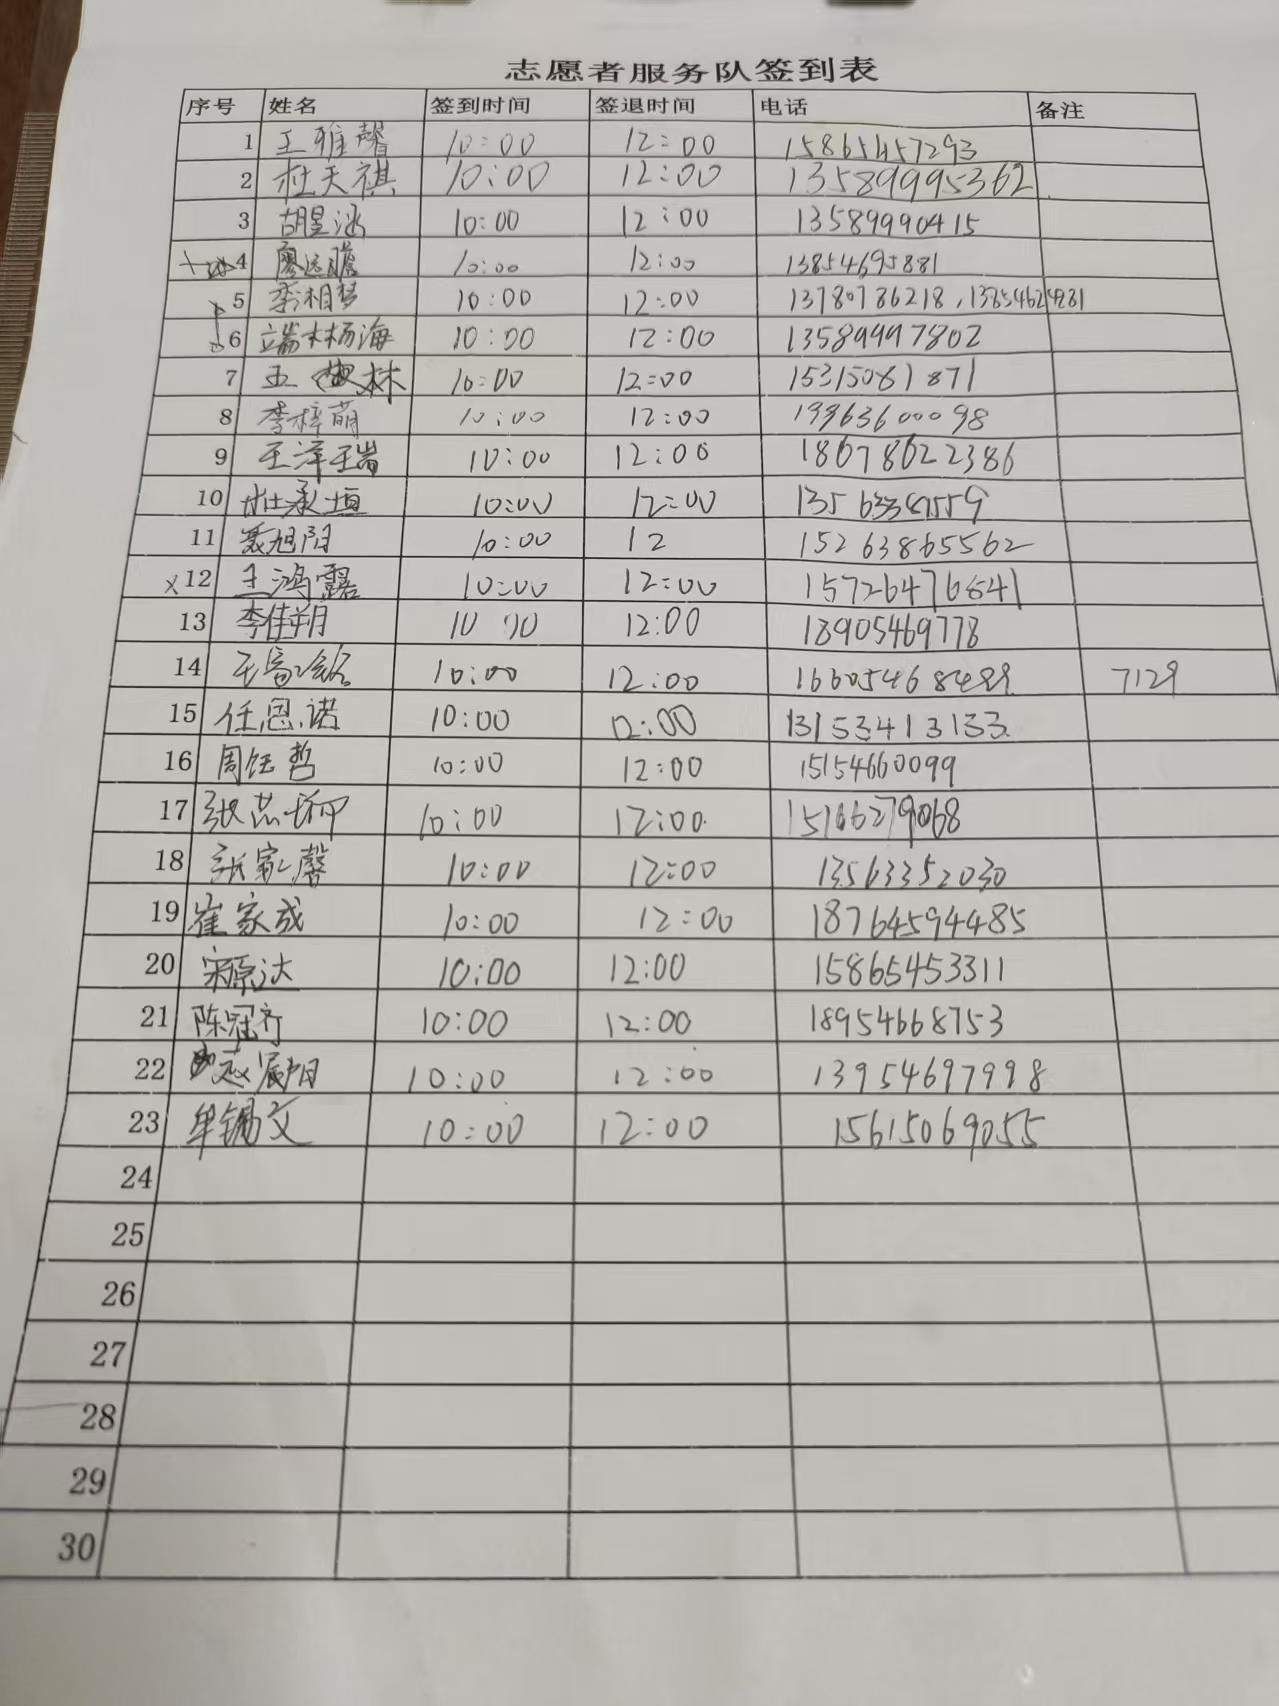 志愿者服务队签到表
序号 姓名 签到时间 签退时间 电话 备注
1 王雅馨 10:00 12:00 15865457293
2 杜天祺 10:00 12:00 13589995362
3 胡星泳 10:00 12:00 13589990415
4 廖远瞻 10:00 12:00 13854695881
5 李湘梦 10:00 12:00 13780786218,
6 端木杨海 10:00 12:00 13589997802
7 王 林 10:00 12:00 15315081871
8 李梓萌 10:00 12:00 19963600098
9 王泽瑞 10:00 12:00 18678622386
10 杜承垣 10:00 12:00
11 聂旭阳 10:00 12 15263865562
x12 王鸿露 10:00 12:00 15726476841
13 李佳朔 10:00 12:00 18905469778
14 10:00 12:00 7129
15 任恩诺 10:00 12:00 13153413133
16 周钰哲 10:00 12:00 15154660099
17 10:00 12:00 15166279068
18 张家馨 10:00 12:00 13563352030
19 崔家成 10:00 12:00 18764594485
20 宋原达 10:00 12:00 15865453311
21 陈冠齐 10:00 12:00 18954668753
22 10:00 12:00 13954697998
23 牟锡文 10:00 12:00 15615069055
24
25
26
27
28
29
30